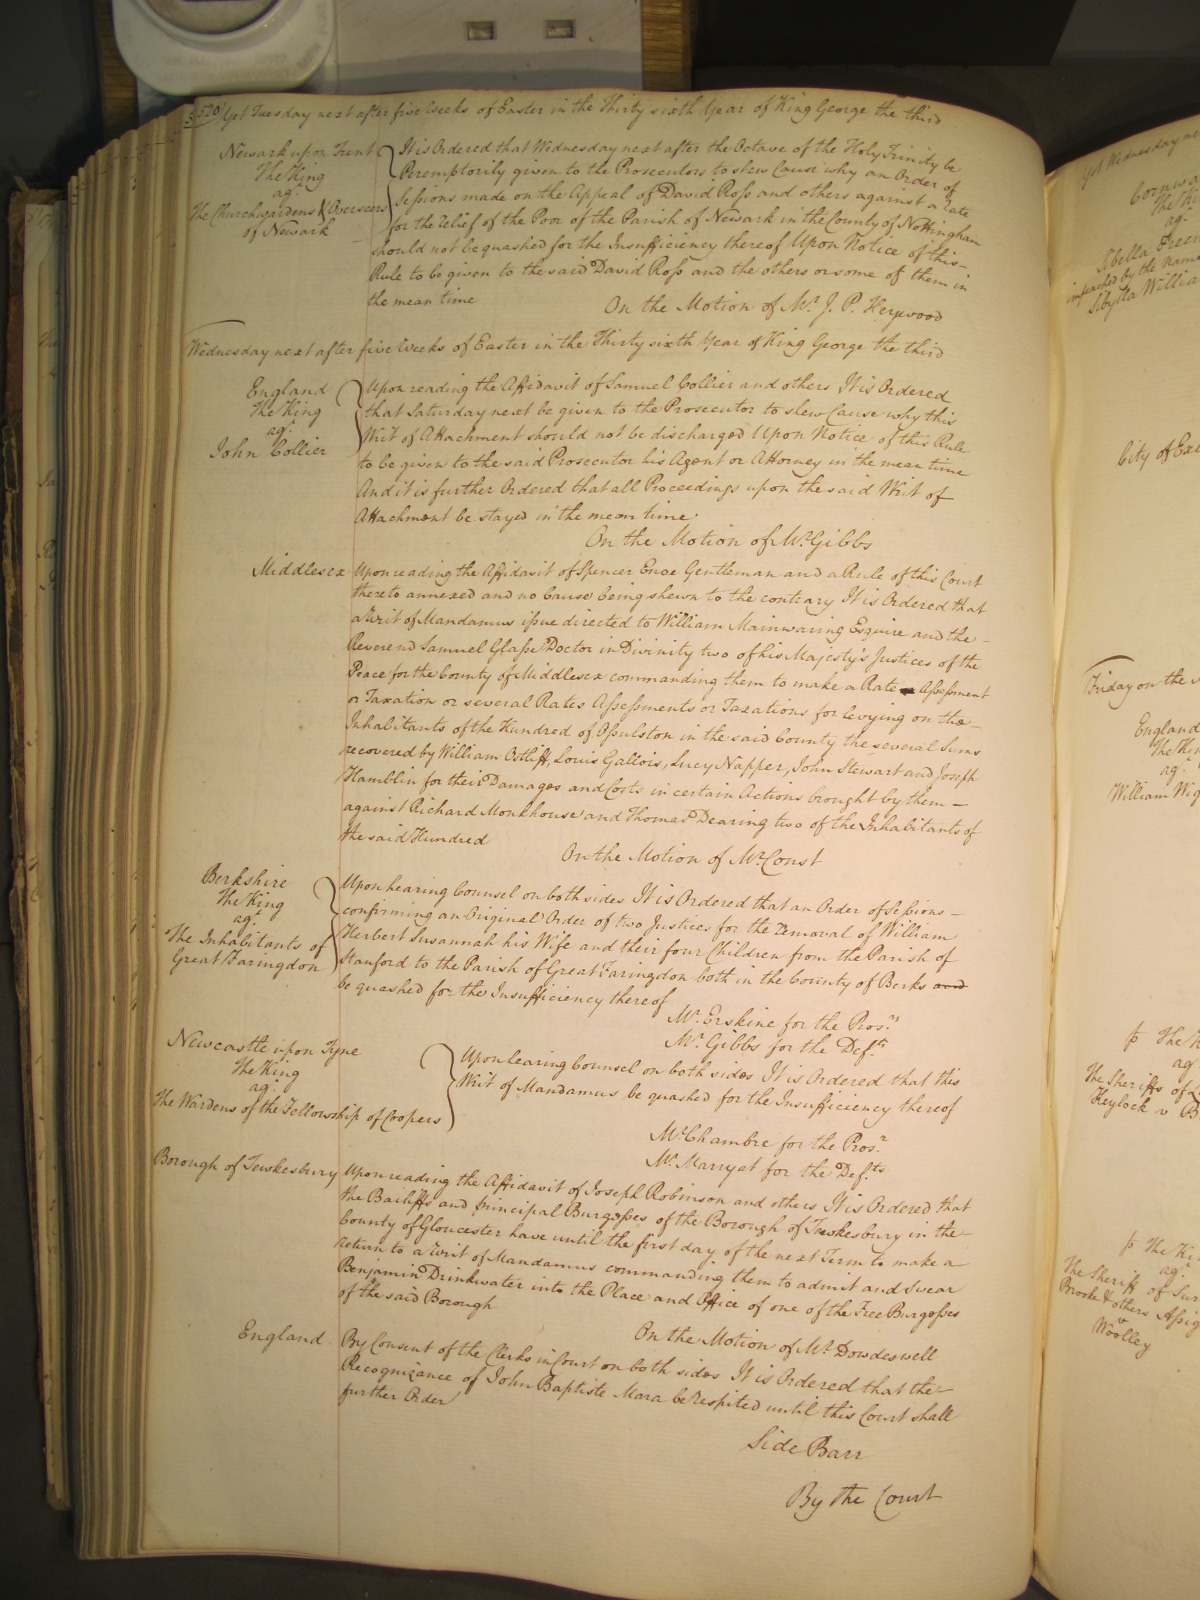 520 Yet Tuesday next after five Weeks of Easter in the Thirty sixth Year of King George the third
Newark upon Trent
The King
agt.
The Churchwardens & Overseers
of Newark
It is Ordered that Wednesday next after the Octave of the Holy Trinity be
Peremptorily given to the Prosecutors to shew Cause why an Order of
Sessions made on the Appeal of David Ross and others against a rate
for the relief of the Poor of the Parish of Newark in the County of Nottingham
should not be quashed for the Insufficiency thereof Upon Notice of this
Rule to be given to the said David Ross and the others or some of them in
the mean time
On the Motion of Mr. J. P. Heywood
Wednesday next after five Weeks of Easter in the Thirty sixth Year of King George the third
England
The King
agt.
John Collier
Upon reading the Affidavit of Samuel Collier and others It is Ordered
that Saturday next be given to the Prosecutor to shew Cause why this
Writ of Attachment should not be discharged Upon Notice of this Rule
to be given to the said Prosecutor his Agent or Attorney in the mean time
And it is further Ordered that all Proceedings upon the said Writ of
Attachment be stayed in the mean time
On the Motion of Mr. Gibbs
Middlesex
Upon reading the Affidavit of Spencer Gentleman and a Rule of this Court
thereto annexed and no Cause being shewn to the contrary It is Ordered that
a Writ of Mandamus issue directed to William Mainwaring Esquire and the
Reverend Samuel Glasse Doctor in Divinity two of his Majesty's Justices of the
Peace for the County of Middlesex commanding them to make a Rate Assessment
or Taxation or several Rates Assessments or Taxations for levying on the
Inhabitants of the Hundred of Ossulston in the said County the several Sums
recovered by William Ostliff, Louis Gallois, Lucy Napper, John Stewart and Joseph
Hamblin for their Damages and Costs in certain Actions brought by them
against Richard Monkhouse and Thomas Dearing two of the Inhabitants of
the said Hundred
On the Motion of Mr. Const
Berkshire
The King
agt.
The Inhabitants of
Great Faringdon
Upon hearing Counsel on both sides It is Ordered that an Order of Sessions
confirming an Original Order of two Justices for the removal of William
Herbert Susannah his Wife and their four Children from the Parish of
Stanford to the Parish of Great Faringdon both in the County of Berks and
be quashed for the Insufficiency thereof
Mr. Erskine for the Prosrs.
Mr. Gibbs for the Defts.
Newcastle upon Tyne
The King
agt.
The Wardens of the Fellowship of Coopers
Upon hearing Counsel on both sides It is Ordered that this
Writ of Mandamus be quashed for the Insufficiency thereof
Mr. Chambre for the Prosr.
Mr. Marryat for the Defts.
Borough of Tewkesbury
Upon reading the Affidavit of Joseph Robinson and others It is Ordered that
the Bailiffs and principal Burgesses of the Borough of Tewkesbury in the
County of Gloucester have until the first day of the next Term to make a
return to a Writ of Mandamus commanding them to admit and swear
Benjamin Drinkwater into the Place and Office of one of the Free Burgesses
of the said Borough
On the Motion of Mr. Dowdeswell
England
By Consent of the Clerks in Court on both sides It is Ordered that the
Recognizance of John Baptiste Mara be respited until this Court shall
further Order
Side Barr
By the Court
Yet Wednesday
Cornwa
The Ki
agt.
Sibella Freem
impeached by the name
Sibylla Willia
City of Exe
Friday on the
England
The Kin
agt.
William Wig
The K
agt.
The Sheriffs of
Keylock v B
The Kin
agt.
The Sheriff of Sur
Brooke & others Assig
v
Woolley